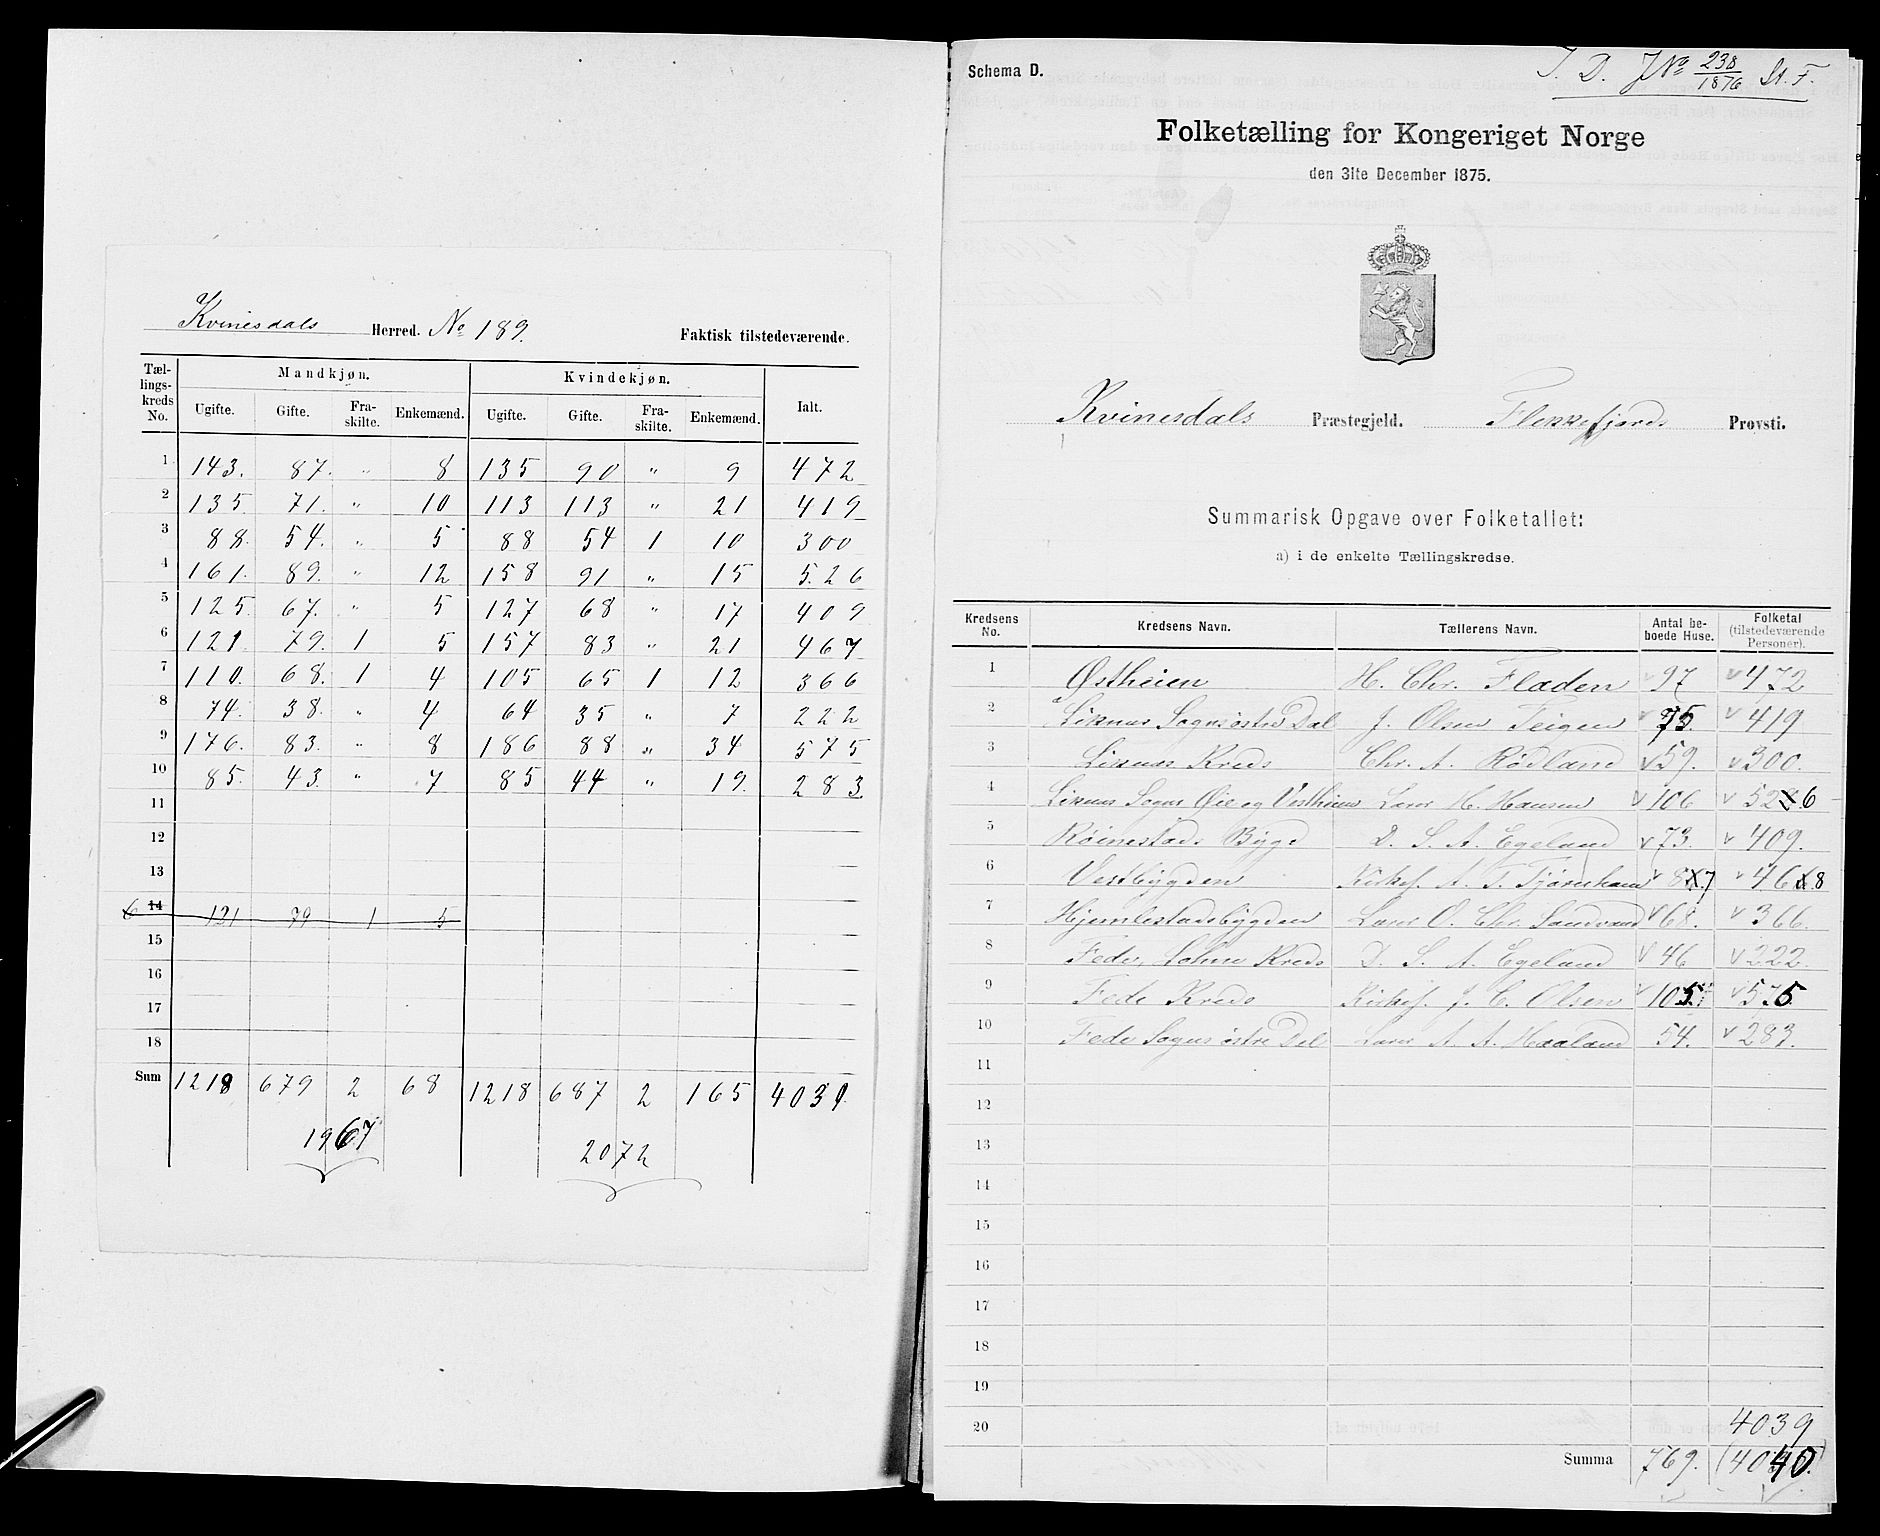 Kvinesdals Herred. No 189. Faktisk tilstedeværende.
Tællingskreds No. Mandkjøn. Kvindekjøn. Ialt.
Ugifte. Gifte. Fraskilte. Enkemænd. Ugifte. Gifte. Fraskilte. Enkemænd.
1 143. 87. " 8 135 90 " 9 472
2 135. 71. " 10 113 113 " 21 419
3 88. 54. " 5 88 54 1 10 300
4 161. 89. " 12 158 91 " 15 526
5 125. 67. " 5 127 68 " 17 409
6 121 79. 1 5 157 83 " 21 467
7 110. 68. 1 4 105 65 1 12 366
8 74. 38. " 4 64 35 " 7 222
9 176. 83. " 8 186 88 " 34 575
10 85. 43. " 7 85 44 " 19. 283
11
12
13
6 14 121 79 1 5
15
16
17
18
Sum 1218 679 2 68 1218 687 2 165 4039
1967 2072
Schema D.
J. D. J No 238/1876 St. F.
Folketælling for Kongeriget Norge
den 31te December 1875.
Kvinesdals Præstegjeld. Flekkefjords Provsti.
Summarisk Opgave over Folketallet:
a) i de enkelte Tællingskredse.
Kredsens No. Kredsens Navn. Tællerens Navn. Antal beboede Huse. Folketal (tilstedeværende Personer).
1 Østheien H. Chr. Fladen 97 472
2 Liknes Sogns østre Dal J. Olsen Teigen 75. 419
3 Liknes Kreds Chr. A. Rødland 59. 300.
4 Liknes Sogns Øie og Vestheien Lærer H. Hansen 106 526
5 Röinestads Bygd D. S. A. Egeland 73. 409.
6 Vestbygden Kirkes. A. T. Tjørnhom 87 468
7 Hjemlestadsbygden Lærer O. Chr. Sandvand 68. 366.
8 Fede, Kreds D. S. A. Egeland 46 222.
9 Fede Kreds Kirkes. J. C. Olsen 105 575
10 Fede Sogns østre Del Lærer A. A. Haaland 54. 283.
11
12
13
14
15
16
17
18
19
20 4039
Summa 769. (4040.)